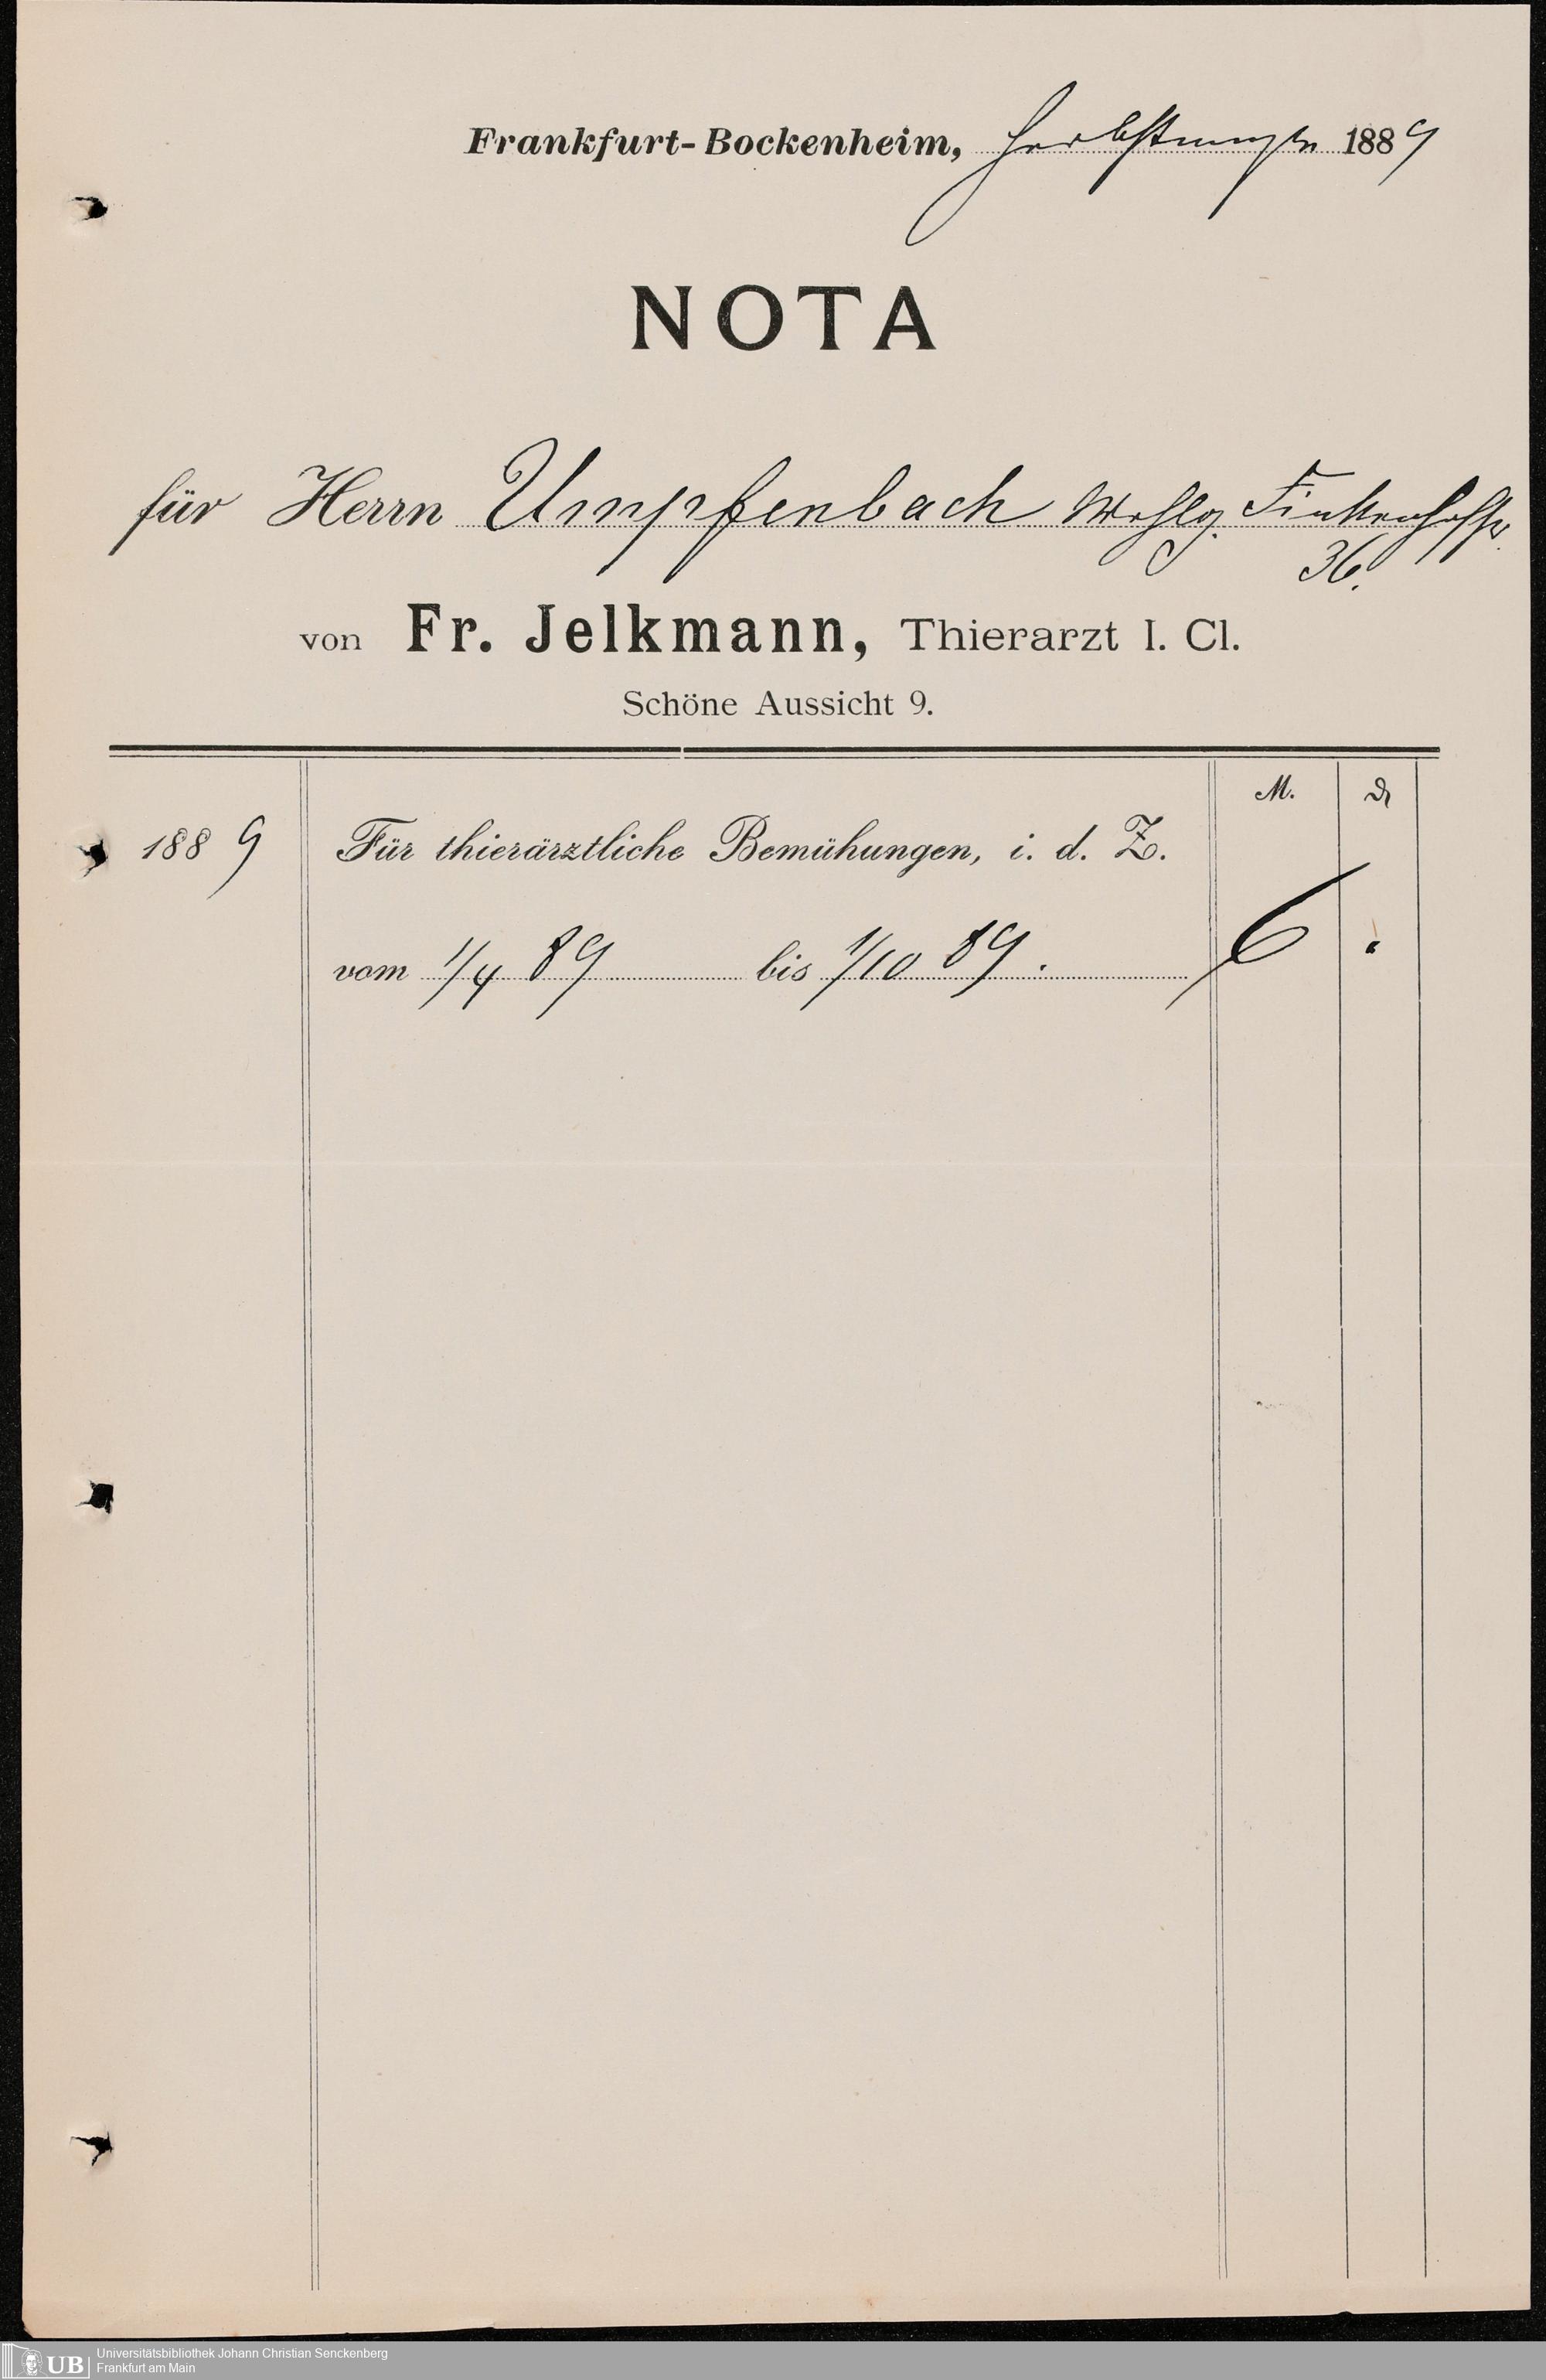 Frankfurt-Bockenheim, Herbstmesse 1889
NOTA
für Herrn Umpfenbach Wohlg. Finkenhofstr.
36.
von Fr. Jelkmann, Thierarzt I. Cl.
Schöne Aussicht 9.
M. ₰
1889 Für thierärztliche Bemühungen, i. d. Z.
vom 1/4 89 bis 1/10 89. 6 "
UB Universitätsbibliothek Johann Christian Senckenberg
Frankfurt am Main